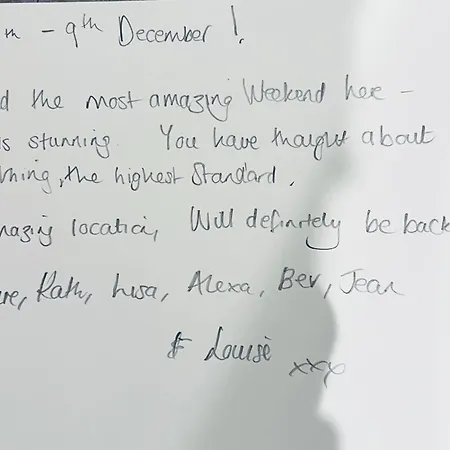 th - 9th December!
d the most amazing Weekend here -
s stunning. You have thought about
thing, the highest Standard.
mazing location, Will definitely be back
re, Kath, Lisa, Alexa, Bev, Jean
& Louise xxx